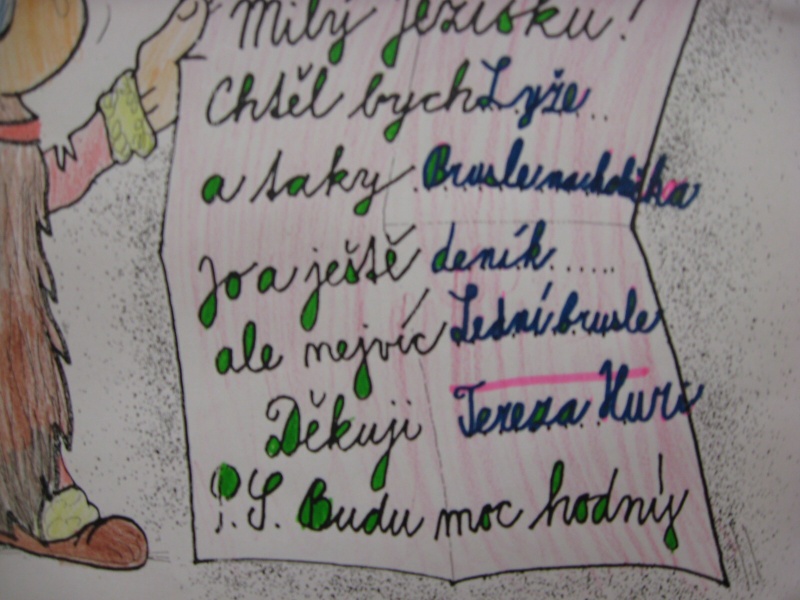 Milý Ježíšku!
Chtěl bych Lyže..
a taky Brusle na
Jo a ještě deník......
ale nejvíc Lední brusle
Děkuji Tereza
P.S. Budu moc hodný